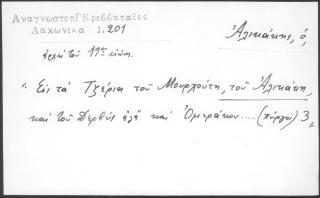 Ἀναγνωστοπ Γ Κρεββαταδες
Λακωνικα 1,201
Ἀλικάκης, ὁ,
ἀρχὲς τοῦ 19ου αἰῶνα.
"Εἰς τὰ Τζέρια τοῦ Μουρχούτη, τοῦ Ἀλικάκη,
καὶ τοῦ Δερβὺς ἀλῆ καὶ Ὀμεράκου.... (πύργοι) 3"